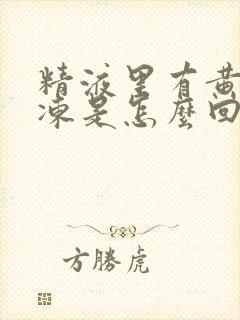 精液里有黄
凍是怎麼回
方勝虎